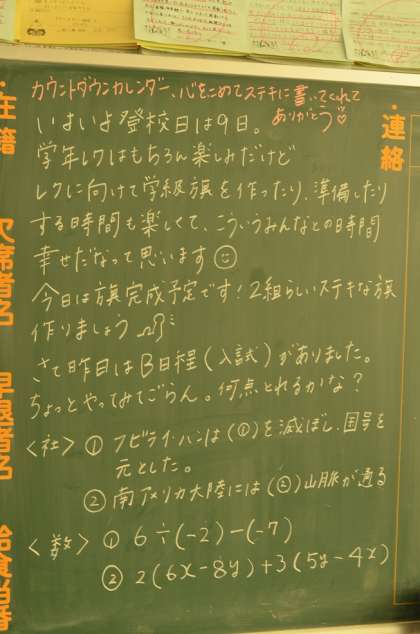 カウントダウンカレンダー、心をこめてステキに書いてくれて
ありがとう
いよいよ登校日は9日。
学年レクはもちろん楽しみだけど
レクに向けて学級旗を作ったり、準備したり
する時間も楽しくて、こういうみんなとの時間
幸せだなって思います
今日は旗完成予定です！2組らしいステキな旗
作りましょう
さて昨日はB日程（入試）がありました。
ちょっとやってみてごらん。何点とれるかな？
〈社〉① フビライ・ハンは（①）を滅ぼし、国号を
元とした。
② 南アメリカ大陸には（②）山脈が通る
〈数〉① 6÷(-2)-(-7)
② 2(6x-8y)+3(5y-4x)
在籍
欠席者名
早退者名
給食当番
連絡